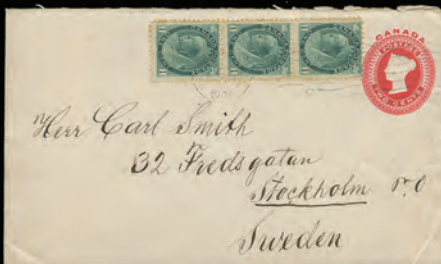 CANADA
POSTAGE
TWO CENTS
Herr Carl Smith
32 Fredsgatan
Stockholm
Sweden